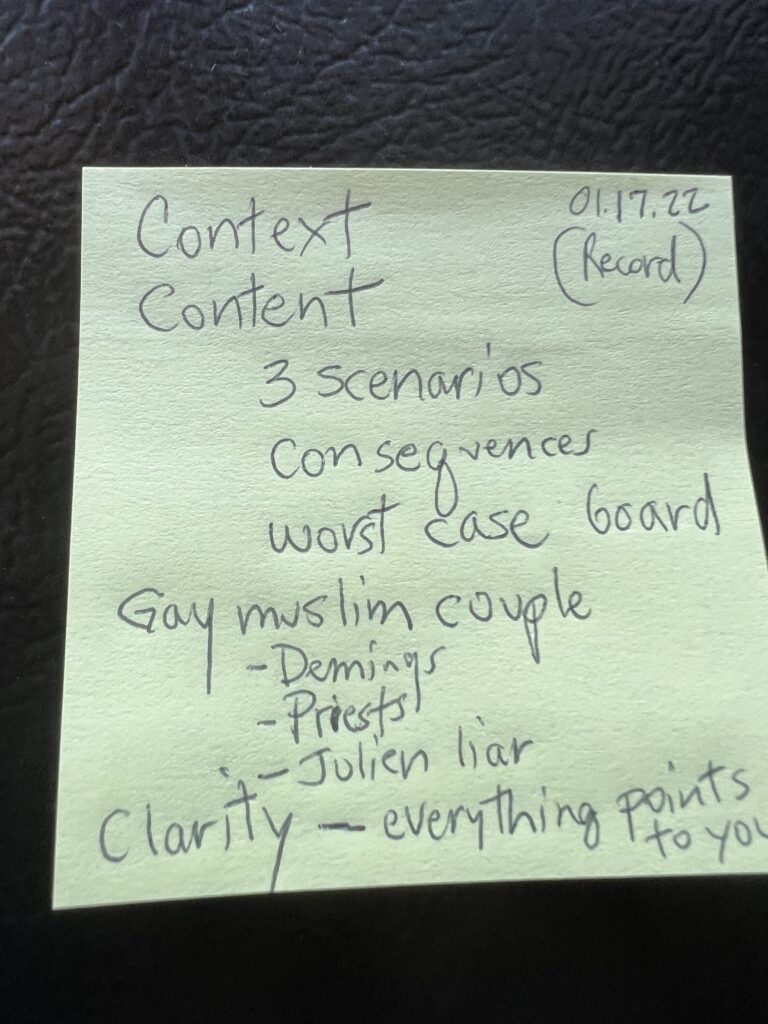 Context
01.17.22
(Record)
Content
3 scenarios
consequences
worst case board
Gay muslim couple
- Demings
- Priests
- Julien liar
Clarity — everything points
to you